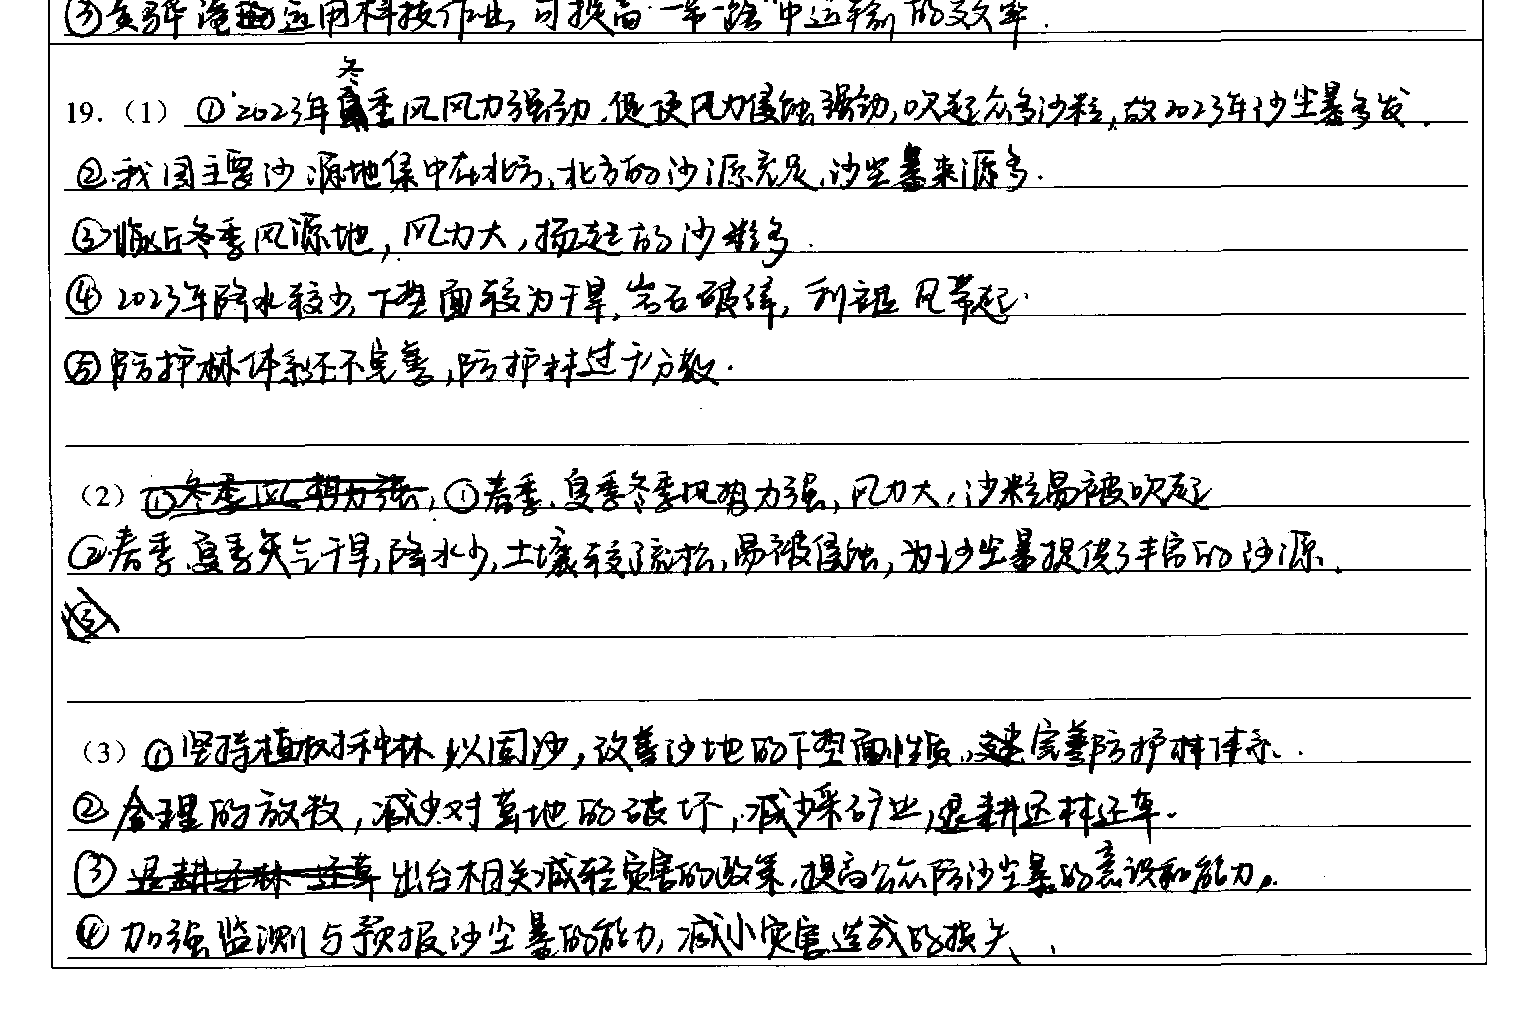 ③ 运用科技作业,可提高"一带一路"中运输的效率.
19.(1) ①2023年冬季风风力强劲,促使风力侵蚀强劲,吹起众多沙粒,故2023年沙尘暴多发.
②我国主要沙源地集中在北方,北方的沙源充足,沙尘暴来源多.
③临近冬季风源地,风力大,扬起的沙粒多.
④2023年降水较少,下垫面较为干旱,岩石破碎,利被风带起.
⑤防护林体系还不完善,防护林过于分散.
(2) ①春季、夏季冬季风势力强,风力大,沙粒易被吹起
②春季夏季天气干旱,降水少,土壤较疏松,易被侵蚀,为沙尘暴提供了丰富的沙源.
(3) ①坚持植树种林以固沙,改善沙地的下垫面性质,完善防护林体系.
②合理的放牧,减少对草地的破坏,减少采矿业,退耕还林还草.
③出台相关减轻灾害的政策,提高公众防沙尘暴的意识和能力.
④加强监测与预报沙尘暴的能力,减小灾害造成的损失.